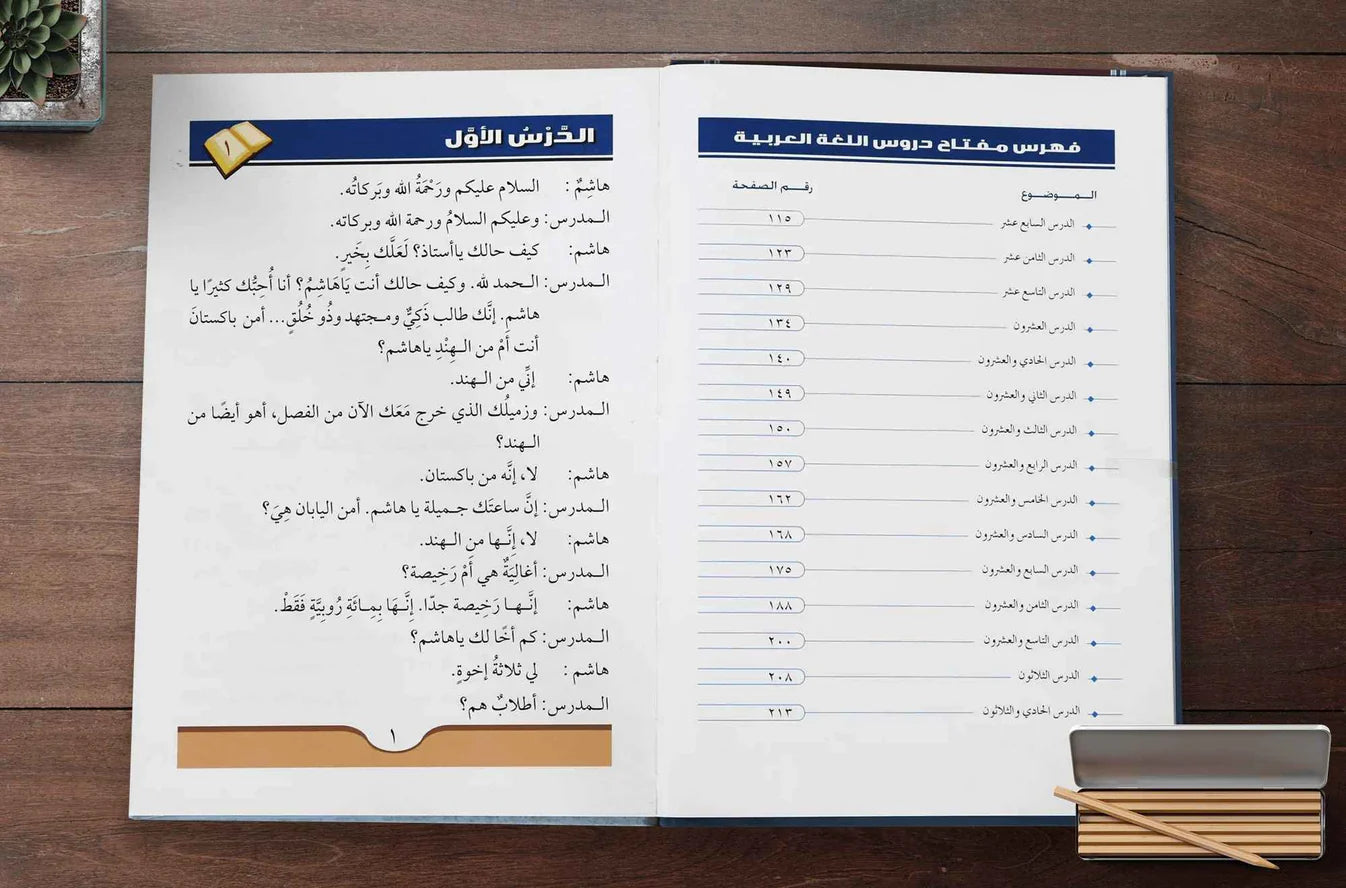 فهرس مفتاح دروس اللغة العربية
الموضوع رقم الصفحة
الدرس السابع عشر ١١٥
الدرس الثامن عشر ١٢٣
الدرس التاسع عشر ١٢٩
الدرس العشرون ١٣٤
الدرس الحادي والعشرون ١٤٠
الدرس الثاني والعشرون ١٤٩
الدرس الثالث والعشرون ١٥٠
الدرس الرابع والعشرون ١٥٧
الدرس الخامس والعشرون ١٦٢
الدرس السادس والعشرون ١٦٨
الدرس السابع والعشرون ١٧٥
الدرس الثامن والعشرون ١٨٨
الدرس التاسع والعشرون ٢٠٠
الدرس الثلاثون ٢٠٨
الدرس الحادي والثلاثون ٢١٣
الدَّرْسُ الأوَّل ١
هاشِمٌ : السلام عليكم ورَحْمَةُ الله وبَركاتُه.
الـمدرس: وعليكم السلامُ ورحمة الله وبركاته.
هاشم: كيف حالك ياأستاذ؟ لَعَلَّك بِخَيرٍ.
الـمدرس: الـحمد لله. وكيف حالك أنت يَاهَاشِمُ؟ أنا أُحِبُّك كثيرًا يا
هاشم. إنَّك طالب ذَكِيٌّ ومـجتهد وذُو خُلُقٍ... أمن باكستانَ
أنت أَمْ من الـهِنْدِ ياهاشم؟
هاشم: إنِّي من الـهند.
الـمدرس: وزميلُك الذي خرج مَعَك الآن من الفصل، أهو أيضًا من
الـهند؟
هاشم: لا، إنَّه من باكستان.
الـمدرس: إنَّ ساعتَك جـميلة يا هاشم. أمن اليابان هِيَ؟
هاشم: لا، إنَّـها من الـهند.
الـمدرس: أغالِيَةٌ هي أَمْ رَخِيصة؟
هاشم: إنَّـها رَخِيصة جدّا. إنَّـهَا بِمِـائَةِ رُوبِيَّةٍ فَقَطْ.
الـمدرس: كم أخًا لك ياهاشم؟
هاشم : لي ثلاثةُ إخوةٍ.
الـمدرس: أطلابٌ هم؟
١